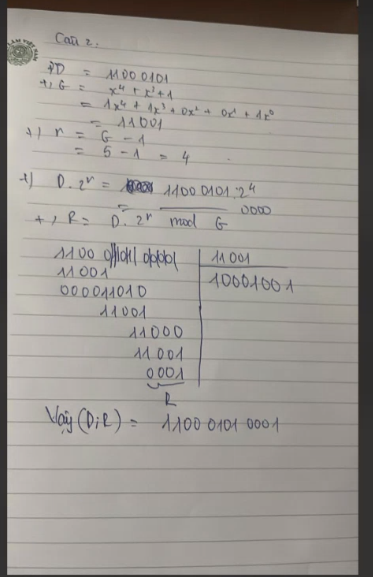 Câu 2.
+) D = 11000101
+) G = x⁴ + x³ + 1
= 1x⁴ + 1x³ + 0x² + 0x¹ + 1x⁰
= 11001
+) r = G - 1
= 5 - 1 = 4
+) D. 2ʳ = 11000101. 2⁴
= 0000
+) R = D. 2ʳ mod G
1100 0101 0000 | 11001
11001 | 10001001
000011010
11001
11000
11001
0001
R
Vậy (D;R) = 1100 0101 0001